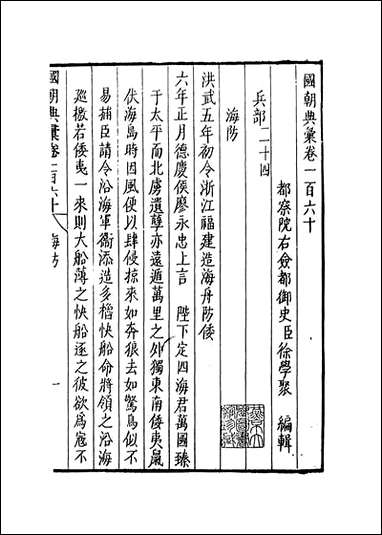 國朝典彙卷一百六十
都察院右僉都御史臣徐學聚 編輯
兵部二十四
海防
洪武五年初令浙江福建造海舟防倭
六年正月德慶侯廖永忠上言 陛下定四海君萬國臻
于太平而北虜遺孽亦遠遁萬里之外獨東南倭夷鼠
伏海島時因風便以肆侵掠來如奔狼去如驚鳥似不
易捕臣請令沿海軍衛添造多櫓快船命將領之沿海
巡檄若倭夷一來則大船薄之快船逐之彼欲為寇不
國朝典彙卷一百六十 海防 一